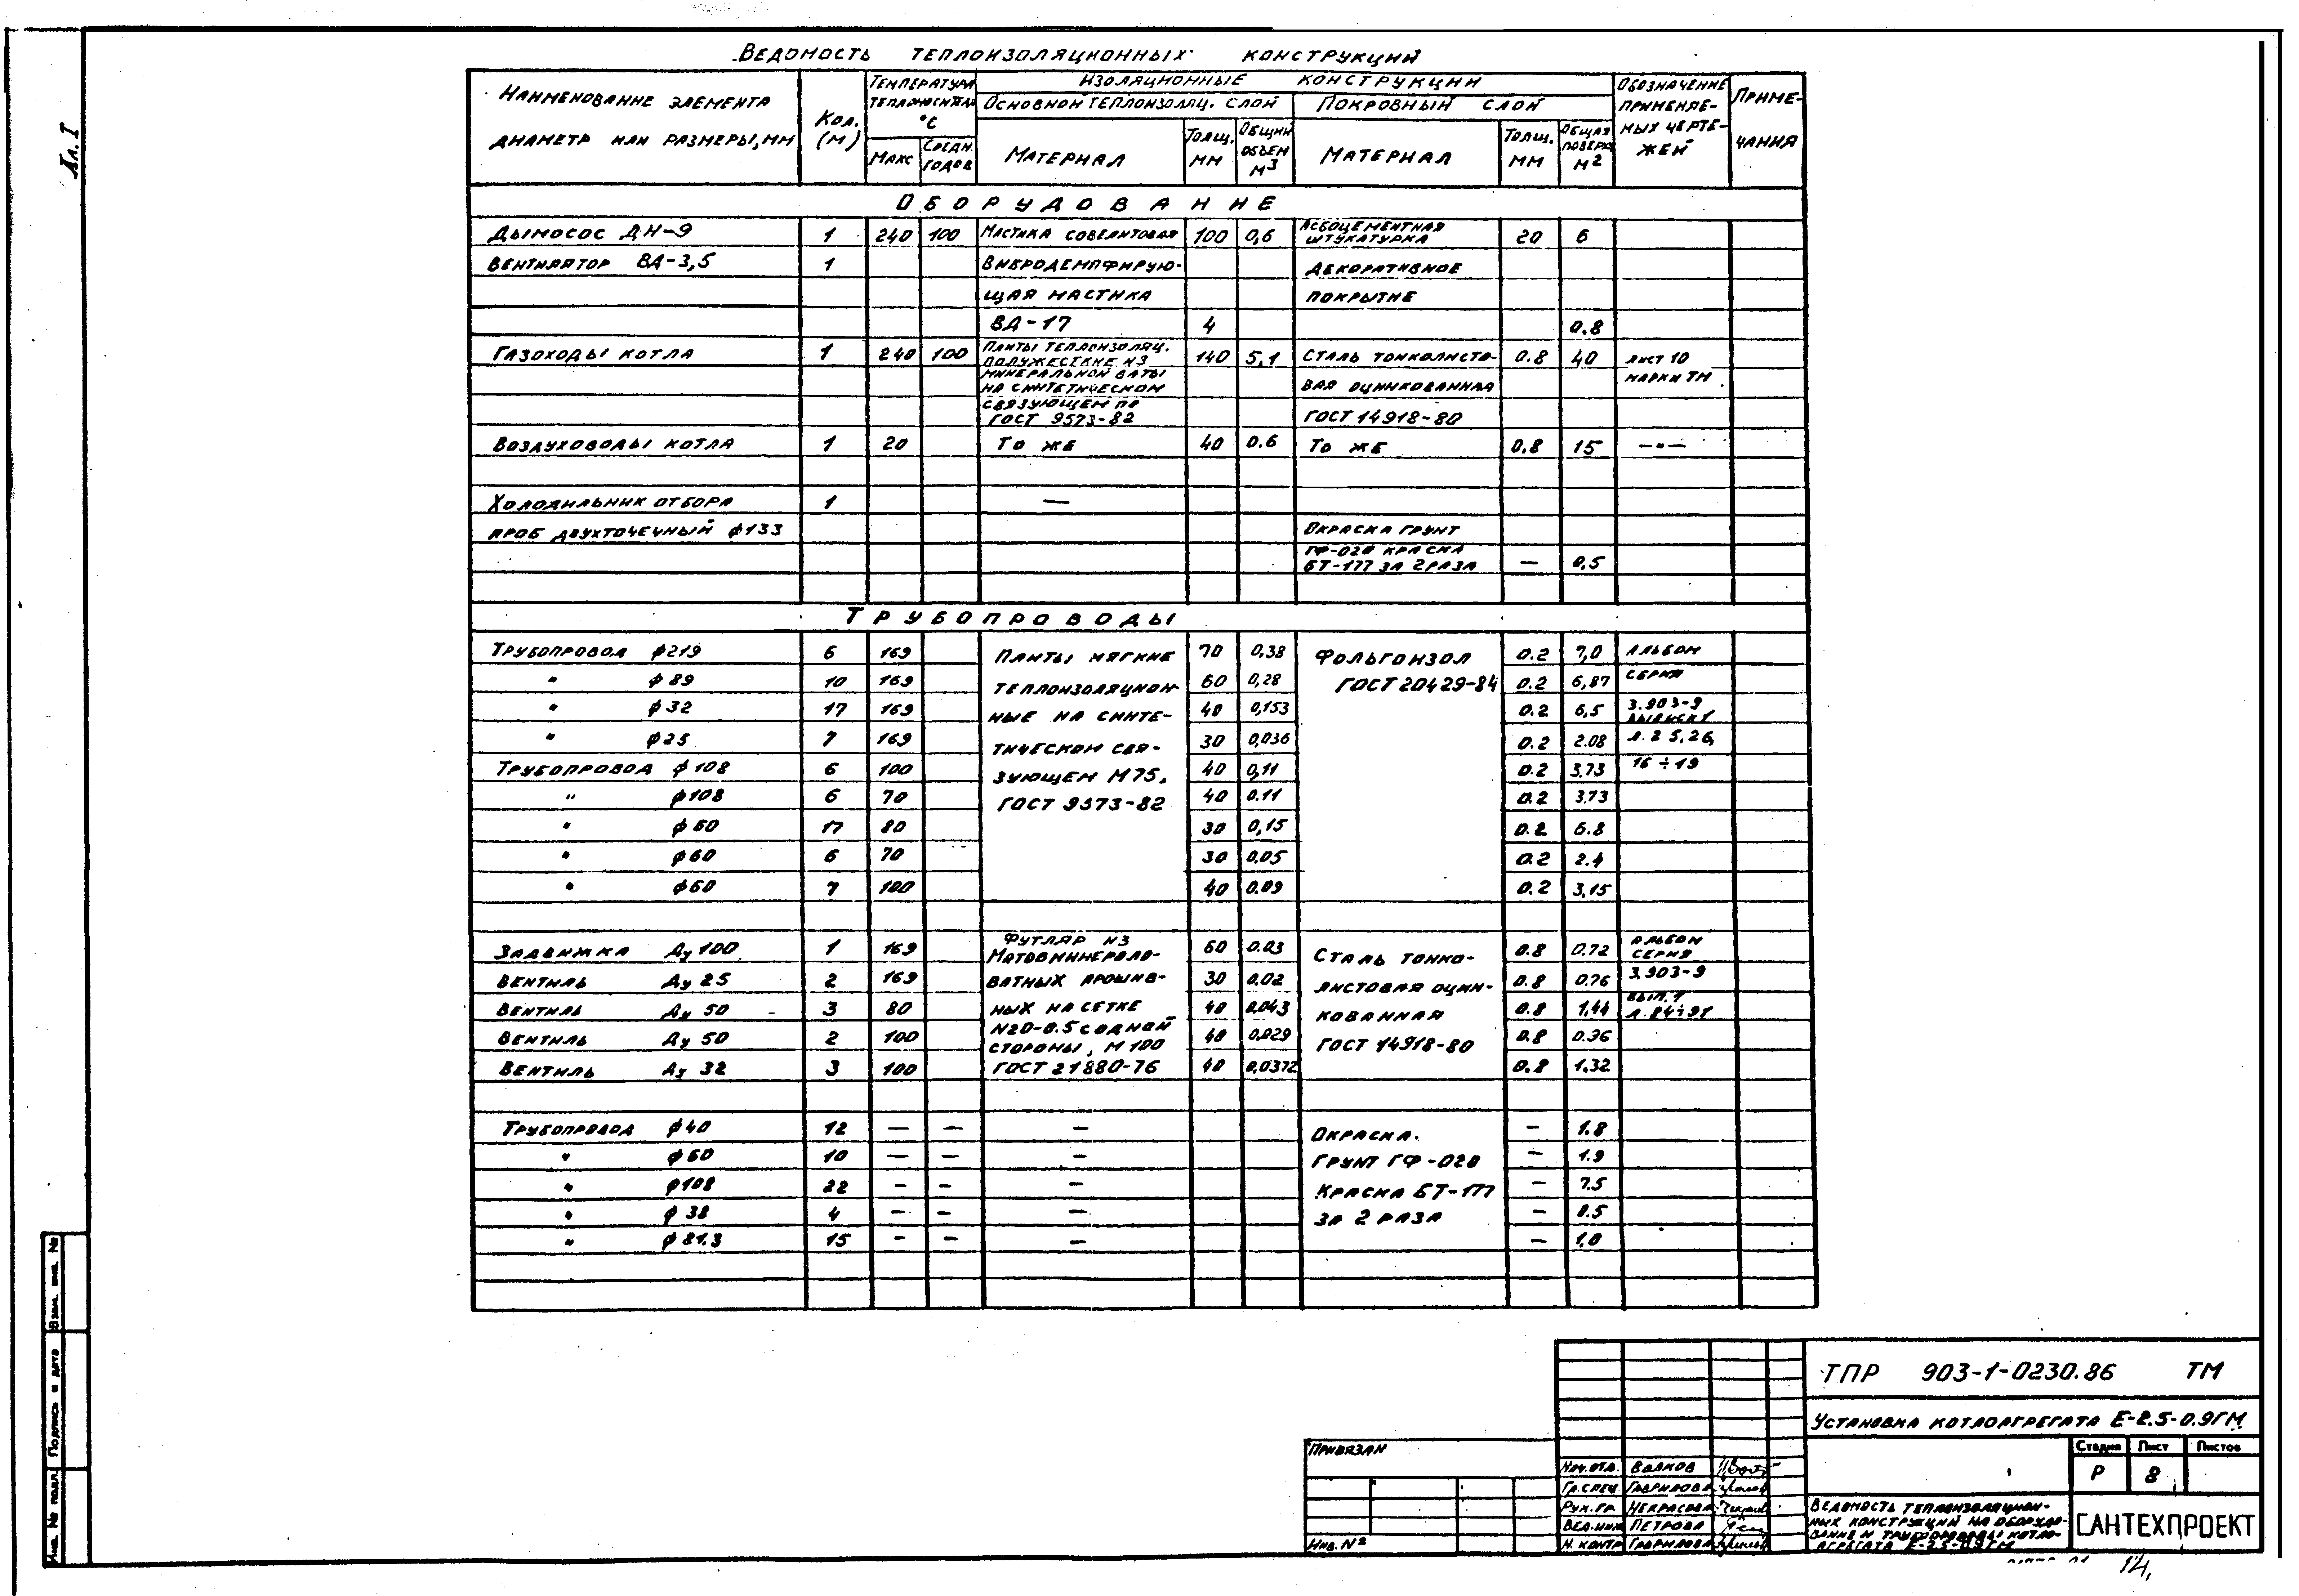 Ал. I
Ведомость теплоизоляционных конструкций
Наименование элемента
диаметр или размеры, мм
Кол.
(м)
Температура
теплоносителя
°C
Макс
Средн.
годов
Изоляционные конструкции
Основной теплоизоляц. слой
Покровный слой
Материал
Толщ.
мм
Общий
объем
м3
Материал
Толщ.
мм
Общая
поверх.
м2
Обозначение
применяе-
мых черте-
жей
Приме-
чания
Оборудование
Дымосос ДН-9 1 240 100 Мастика совелитовая 100 0,6 Асбоцементная штукатурка 20 6
Вентилятор ВД-3,5 1 Вибродемпфирую- Декоративное
щая мастика покрытие
ВД-17 4 0.8
Газоходы котла 1 240 100 Плиты теплоизоляц. 140 5,1 Сталь тонколисто- 0.8 40 лист 10
полужесткие из
минеральной ваты марки ТМ
на синтетическом вая оцинкованная
связующем по
ГОСТ 9573-82 ГОСТ 14918-80
Воздуховоды котла 1 20 То же 40 0.6 То же 0.8 15 —"—
Холодильник отбора 1 —
проб двухточечный ф133 Окраска грунт
ГФ-020 краска
БТ-177 за 2 раза — 0,5
Трубопроводы
Трубопровод ф219 6 169 Плиты мягкие 70 0,38 Фольгоизол 0.2 7,0 Альбом
" ф89 10 169 теплоизоляцион- 60 0,28 ГОСТ 20429-84 0.2 6,87 серия
" ф32 17 169 ные на синте- 40 0,153 0.2 6,5 3.903-9
выпуск 1
" ф25 7 169 тическом свя- 30 0,036 0.2 2.08 л. 25,26,
Трубопровод ф108 6 100 зующем М75, 40 0,11 0.2 3,73 16÷19
" ф108 6 70 ГОСТ 9573-82 40 0.11 0.2 3,73
" ф60 17 80 30 0,15 0.2 6.8
" ф60 6 70 30 0.05 0.2 2.4
" ф60 7 100 40 0.09 0.2 3,15
Задвижка Ду 100 1 169 Футляр из 60 0.03 Сталь тонко- 0.8 0.72 альбом
Матовминерало- серия
Вентиль Ду 25 2 169 ватных прошив- 30 0.02 листовая оцин- 0.8 0.76 3.903-9
Вентиль Ду 50 3 80 ных на сетке 40 0.043 кованная 0.8 1,44 вып. 1
л. 84÷91
Вентиль Ду 50 2 100 N20-0.5 с одной 40 0.029 ГОСТ 14918-80 0.8 0.96
стороны, М 100
Вентиль Ду 32 3 100 ГОСТ 21880-76 40 0,0372 0.8 1.32
Трубопровод ф40 12 — — — Окраска. — 1.8
" ф60 10 — — — Грунт ГФ-020 — 1.9
" ф108 22 — — — Краска БТ-177 — 7.5
" ф38 4 — — — за 2 раза — 0.5
" ф81.3 15 — — — — 1.0
Взам. инв. №
Подпись и дата
Инв. № подл.
Привязан
Инв. №
Нач. отд. Волков
Гл. спец. Гаврилова
Рук. гр. Некрасова
Вед. инж. Петрова
Н. контр. Гаврилова
ТПР 903-1-0230.86 ТМ
Установка котлоагрегата Е-2.5-0.9ГМ
Стадия Лист Листов
Р 8
Ведомость теплоизоляцион-
ных конструкций на оборудо-
вание и трубопроводы котло-
агрегата Е-2.5-0.9ГМ
САНТЕХПРОЕКТ
14,